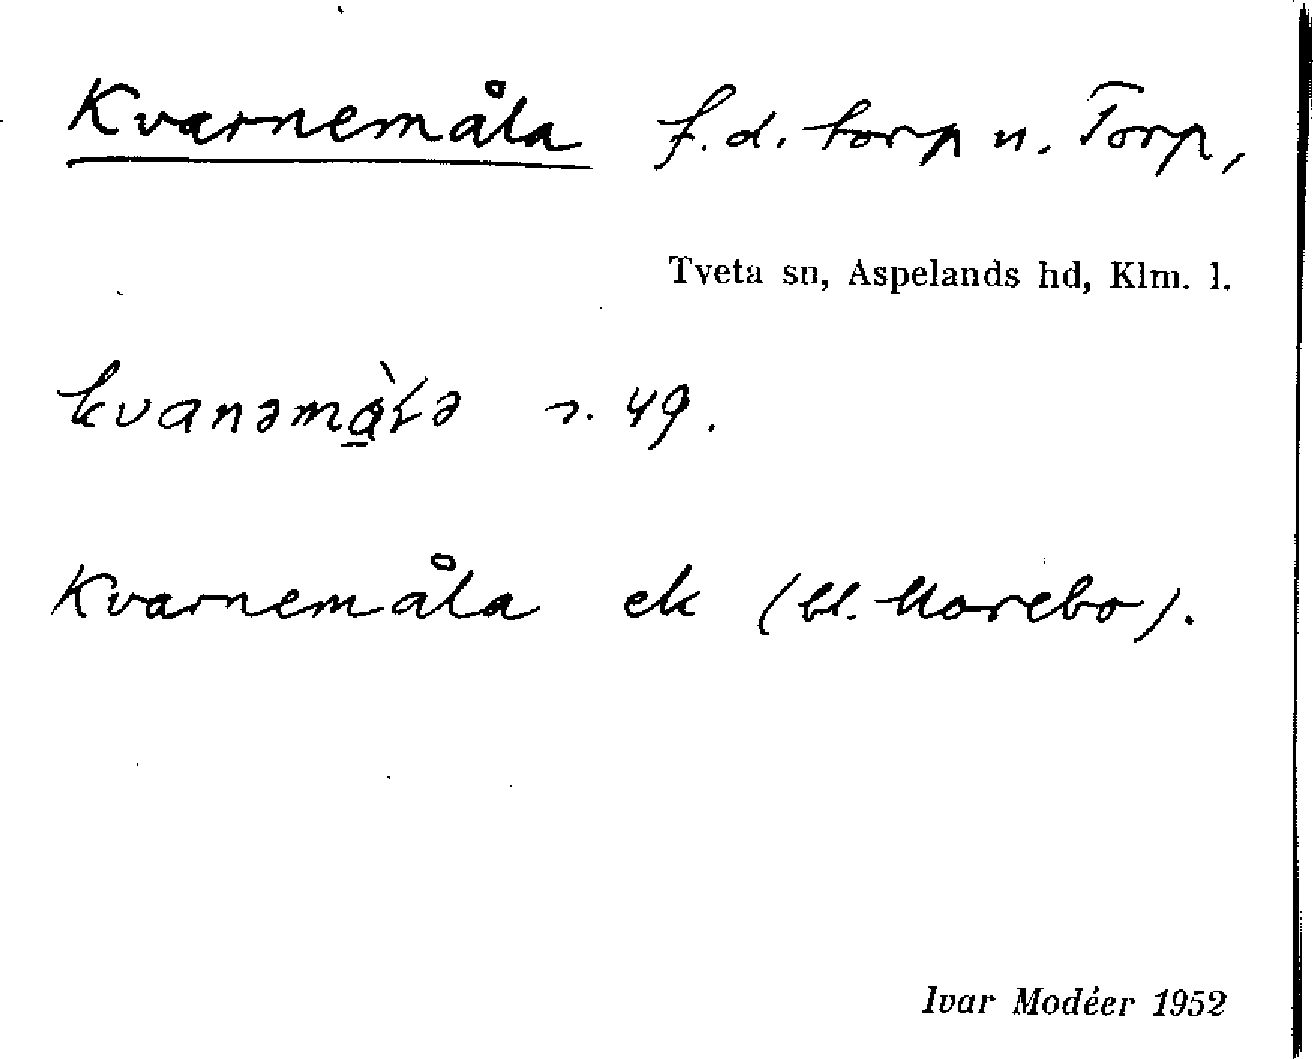 Kvarnemåla f.d. torp u. Torp,
Tveta sn, Aspelands hd, Klm. l.
kvanəmà̳ɫə s. 49.
Kvarnemåla ek (bl. Morebo).
Ivar Modéer 1952